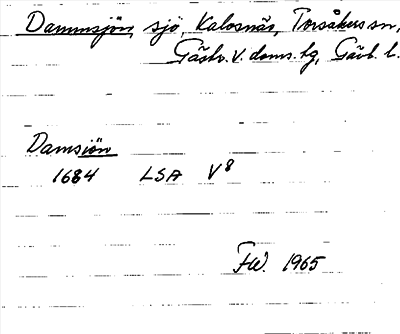 Dammsjön, sjö, Kalosnäs, Torsåkers sn,
Gästr. V. doms. hg, Gävl. l.
Damsiön
1684 LSA V8
FW. 1965